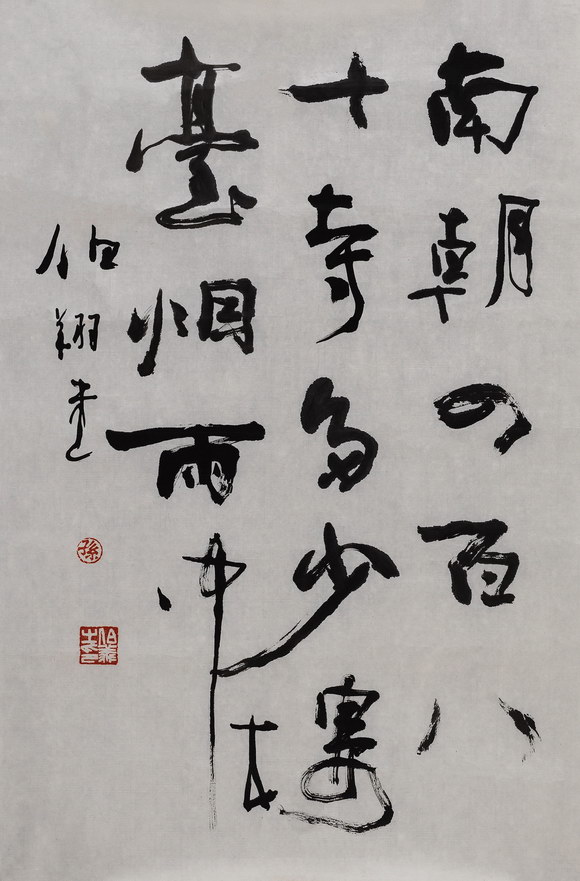 南朝四百八
十寺多少楼
臺烟雨中
伯翔书
孫